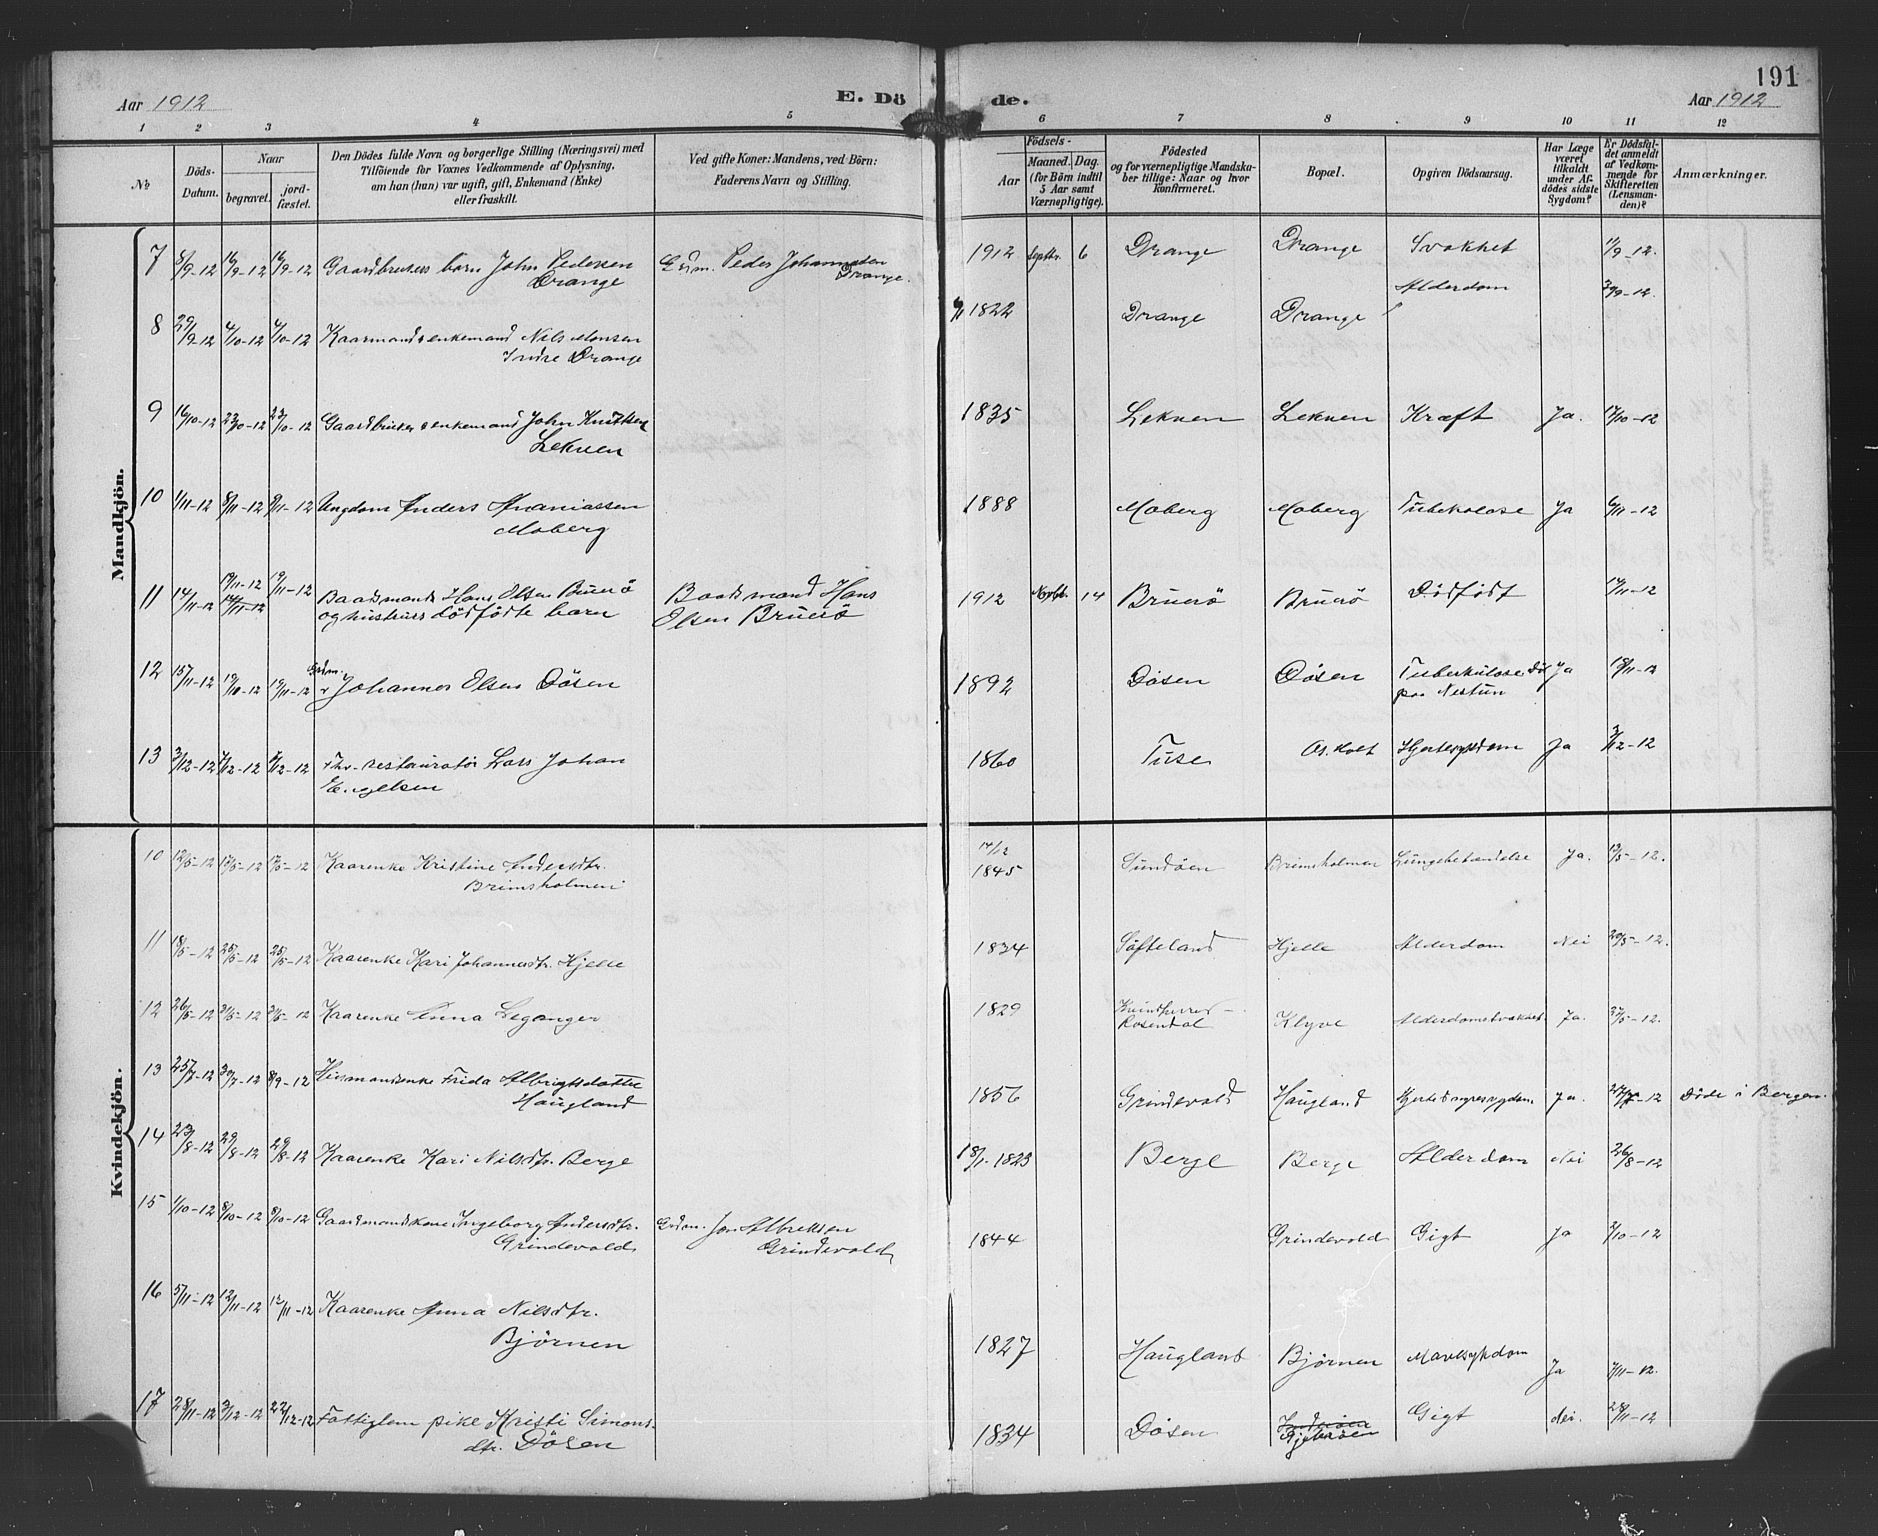 191
Aar 1912
E. Dö de.
Aar 1912
1 2 3 4 5 6 7 8 9 10 11 12
№
Döds-
Datum.
Naar
begravet.
jord-
fæstet.
Den Dödes fulde Navn og borgerlige Stilling (Næringsvei) med
Tilföiende for Voxnes Vedkommende af Oplysning,
om han (hun) var ugift, gift, Enkemand (Enke)
eller fraskilt.
Ved gifte Koner: Mandens, ved Börn:
Faderens Navn og Stilling.
Födsels-
Aar
Maaned. Dag.
(for Börn indtil
5 Aar samt
Værnepligtige).
Födested
og for værnepligtige Mandska-
ber tillige: Naar og hvor
konfirmeret.
Bopæl.
Opgiven Dödsaarsag.
Har Læge
været
tilkaldt
under Af-
dödes sidste
Sygdom?
Er Dödsfal-
det anmeldt
af Vedkom-
mende for
Skifteretten
(Lensman-
den)?
Anmærkninger.
Mandkjön.
7 8/9-12 16/9-12 16/9-12 Gaardbrukers barn John Pedersen
Drange
Grdm. Peder Johannesen
Drange.
1912 Septbr. 6 Drange Drange Svakhet 17/9-12.
8 29/9-12 4/10-12 4/10-12 Kaarmand & enkemand Nils Monsen
Indre Drange
1822 Drange Drange Alderdom 30/9-12.
9 16/10-12 23/10-12 23/10-12 Gaardbruker & enkemand John Knutsen
Leknen
1835 Leknen Leknen Kræft Ja. 17/10-12
10 1/11-12 8/11-12 8/11-12 Ungdom Anders Ananiassen
Moberg
1888 Moberg Moberg Tuberkolose Ja 6/11-12
11 14/11-12 19/11-12 19/11-12
14/11-12
Baadsmands Hans Olsen Bruerö
og hustrues dödfödte barn
Baadsmand Hans
Olsen Bruerö
1912 Novbr. 14 Bruerö Bruerö Dödfödt 14/11-12
12 15/11-12 19/10-12 19/11-12 Grdm.
Johannes Olsen Dösen
1892 Dösen Dösen Tuberkulose Död Ja 18/11-12
paa Nestun
13 3/12-12 7/12-12 7/12-12 Fhv. restauratör Lars Johan
Engelsen
1860 Tuse Os. Hjertesygdom Ja 3/12-12
Kvindekjön.
10 12/5-12 17/5-12 17/5-12 Kaarenke Kristine Andersdtr.
Brimsholmen
14/12
1845 Sundöen Brimsholmen Lungebetændelse Ja. 13/5-12.
11 18/5-12 25/5-12 25/5-12 Kaarenke Kari Johannesdtr. Hjelle
1834 Söfteland Hjelle Alderdom Nei 20/5-12.
12 26/5-12 31/5-12 31/5-12 Kaarenke Anna Leganger
1829 Kvindherred-
Rosendal
Klyve Alderdomsvakhet Ja. 27/5-12.
13 25/7-12 30/7-12 8/9-12 Husmandsenke Frida Albrigtsdatter
Haugland
1856 Grindevold Haugland Ja. 27/7-12 Döde i Bergen.
14 23/8-12 29/8-12 29/8-12 Kaarenke Kari Nilsdtr. Berge
18/1-1823 Berge Berge Alderdom Nei 26/8-12
15 1/10-12 8/10-12 8/10-12 Gaardmandskone Ingeborg Andersdtr.
Grindevold
Grdm. Jon Albrektsen
Grindevold
1844 Grindevold Gigt Ja 2/10-12
16 5/11-12 12/11-12 12/11-12 Kaarenke Anna Nilsdtr.
Björnen
1827 Haugland Björnen Mavesygdom Ja 7/11-12.
17 28/11-12 3/12-12 22/12-12 Fattiglem pike Kristi Simons-
dtr. Dösen
1834 Dösen Gigt Nei. 28/11-12